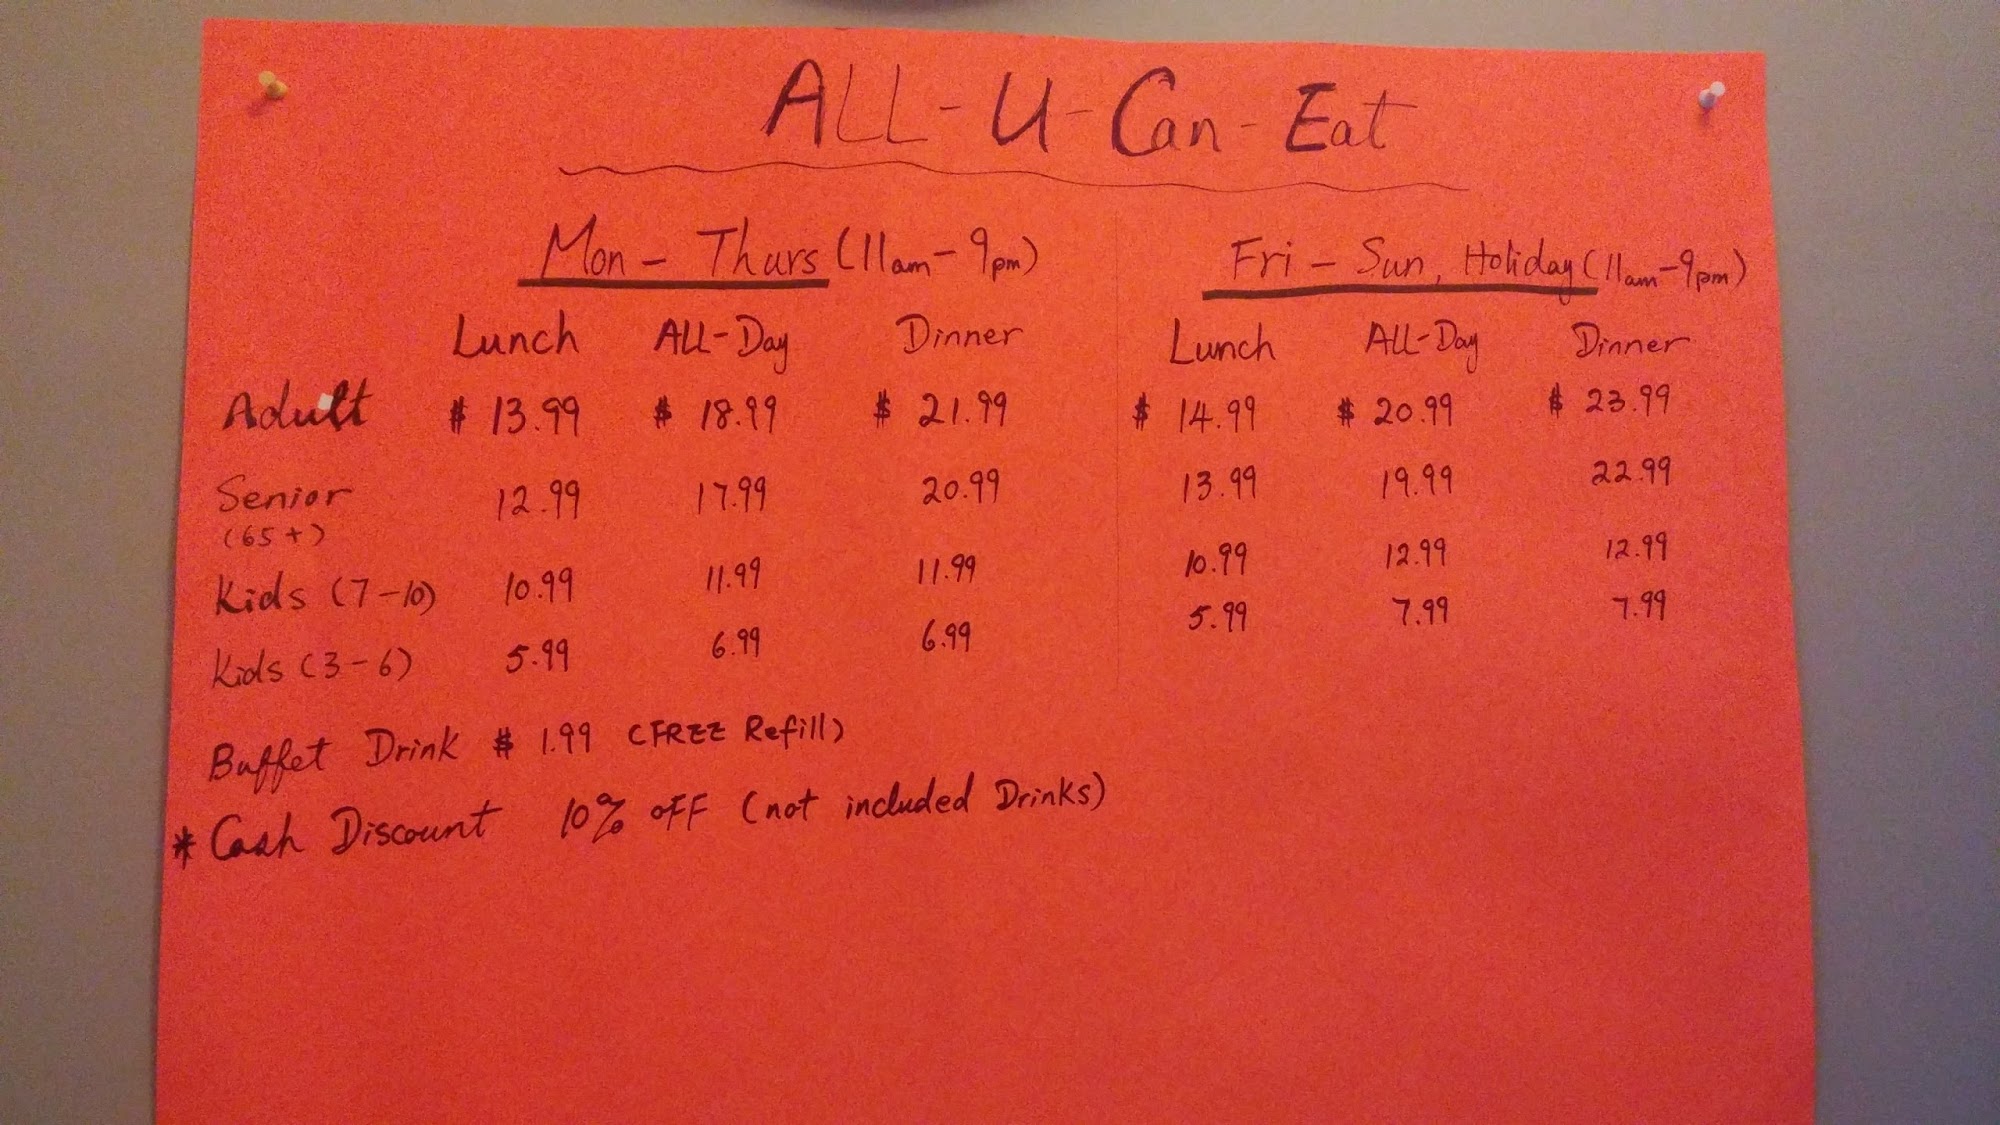 ALL-U-Can-Eat
Mon - Thurs (11am - 9pm) Fri - Sun, Holiday (11am - 9pm)
Lunch ALL-Day Dinner Lunch ALL-Day Dinner
Adult $ 13.99 $ 18.99 $ 21.99 $ 14.99 $ 20.99 $ 23.99
Senior 12.99 17.99 20.99 13.99 19.99 22.99
(65+)
Kids (7-10) 10.99 11.99 11.99 10.99 12.99 12.99
Kids (3-6) 5.99 6.99 6.99 5.99 7.99 7.99
Buffet Drink $ 1.99 (FREE Refill)
* Cash Discount 10% OFF (not included Drinks)